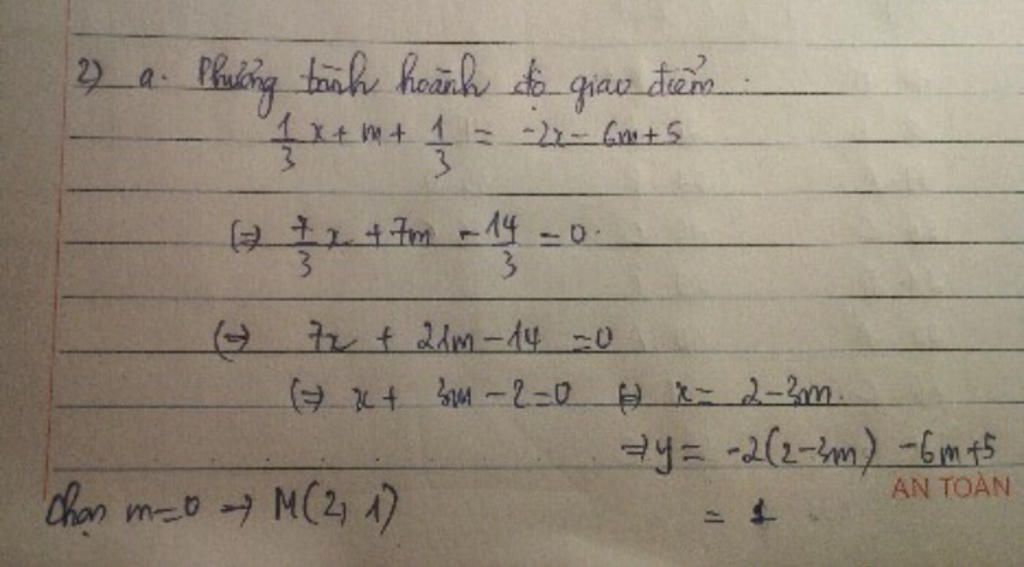 2) a. Phương trình hoành độ giao điểm:
1/3 x + m + 1/3 = -2x - 6m + 5
(=) 7/3 x + 7m - 14/3 = 0.
(=) 7x + 21m - 14 = 0
(=) x + 3m - 2 = 0 (=) x = 2 - 3m.
=> y = -2(2-3m) - 6m + 5
AN TOÀN
= 1
Chọn m = 0 => M(2, 1)